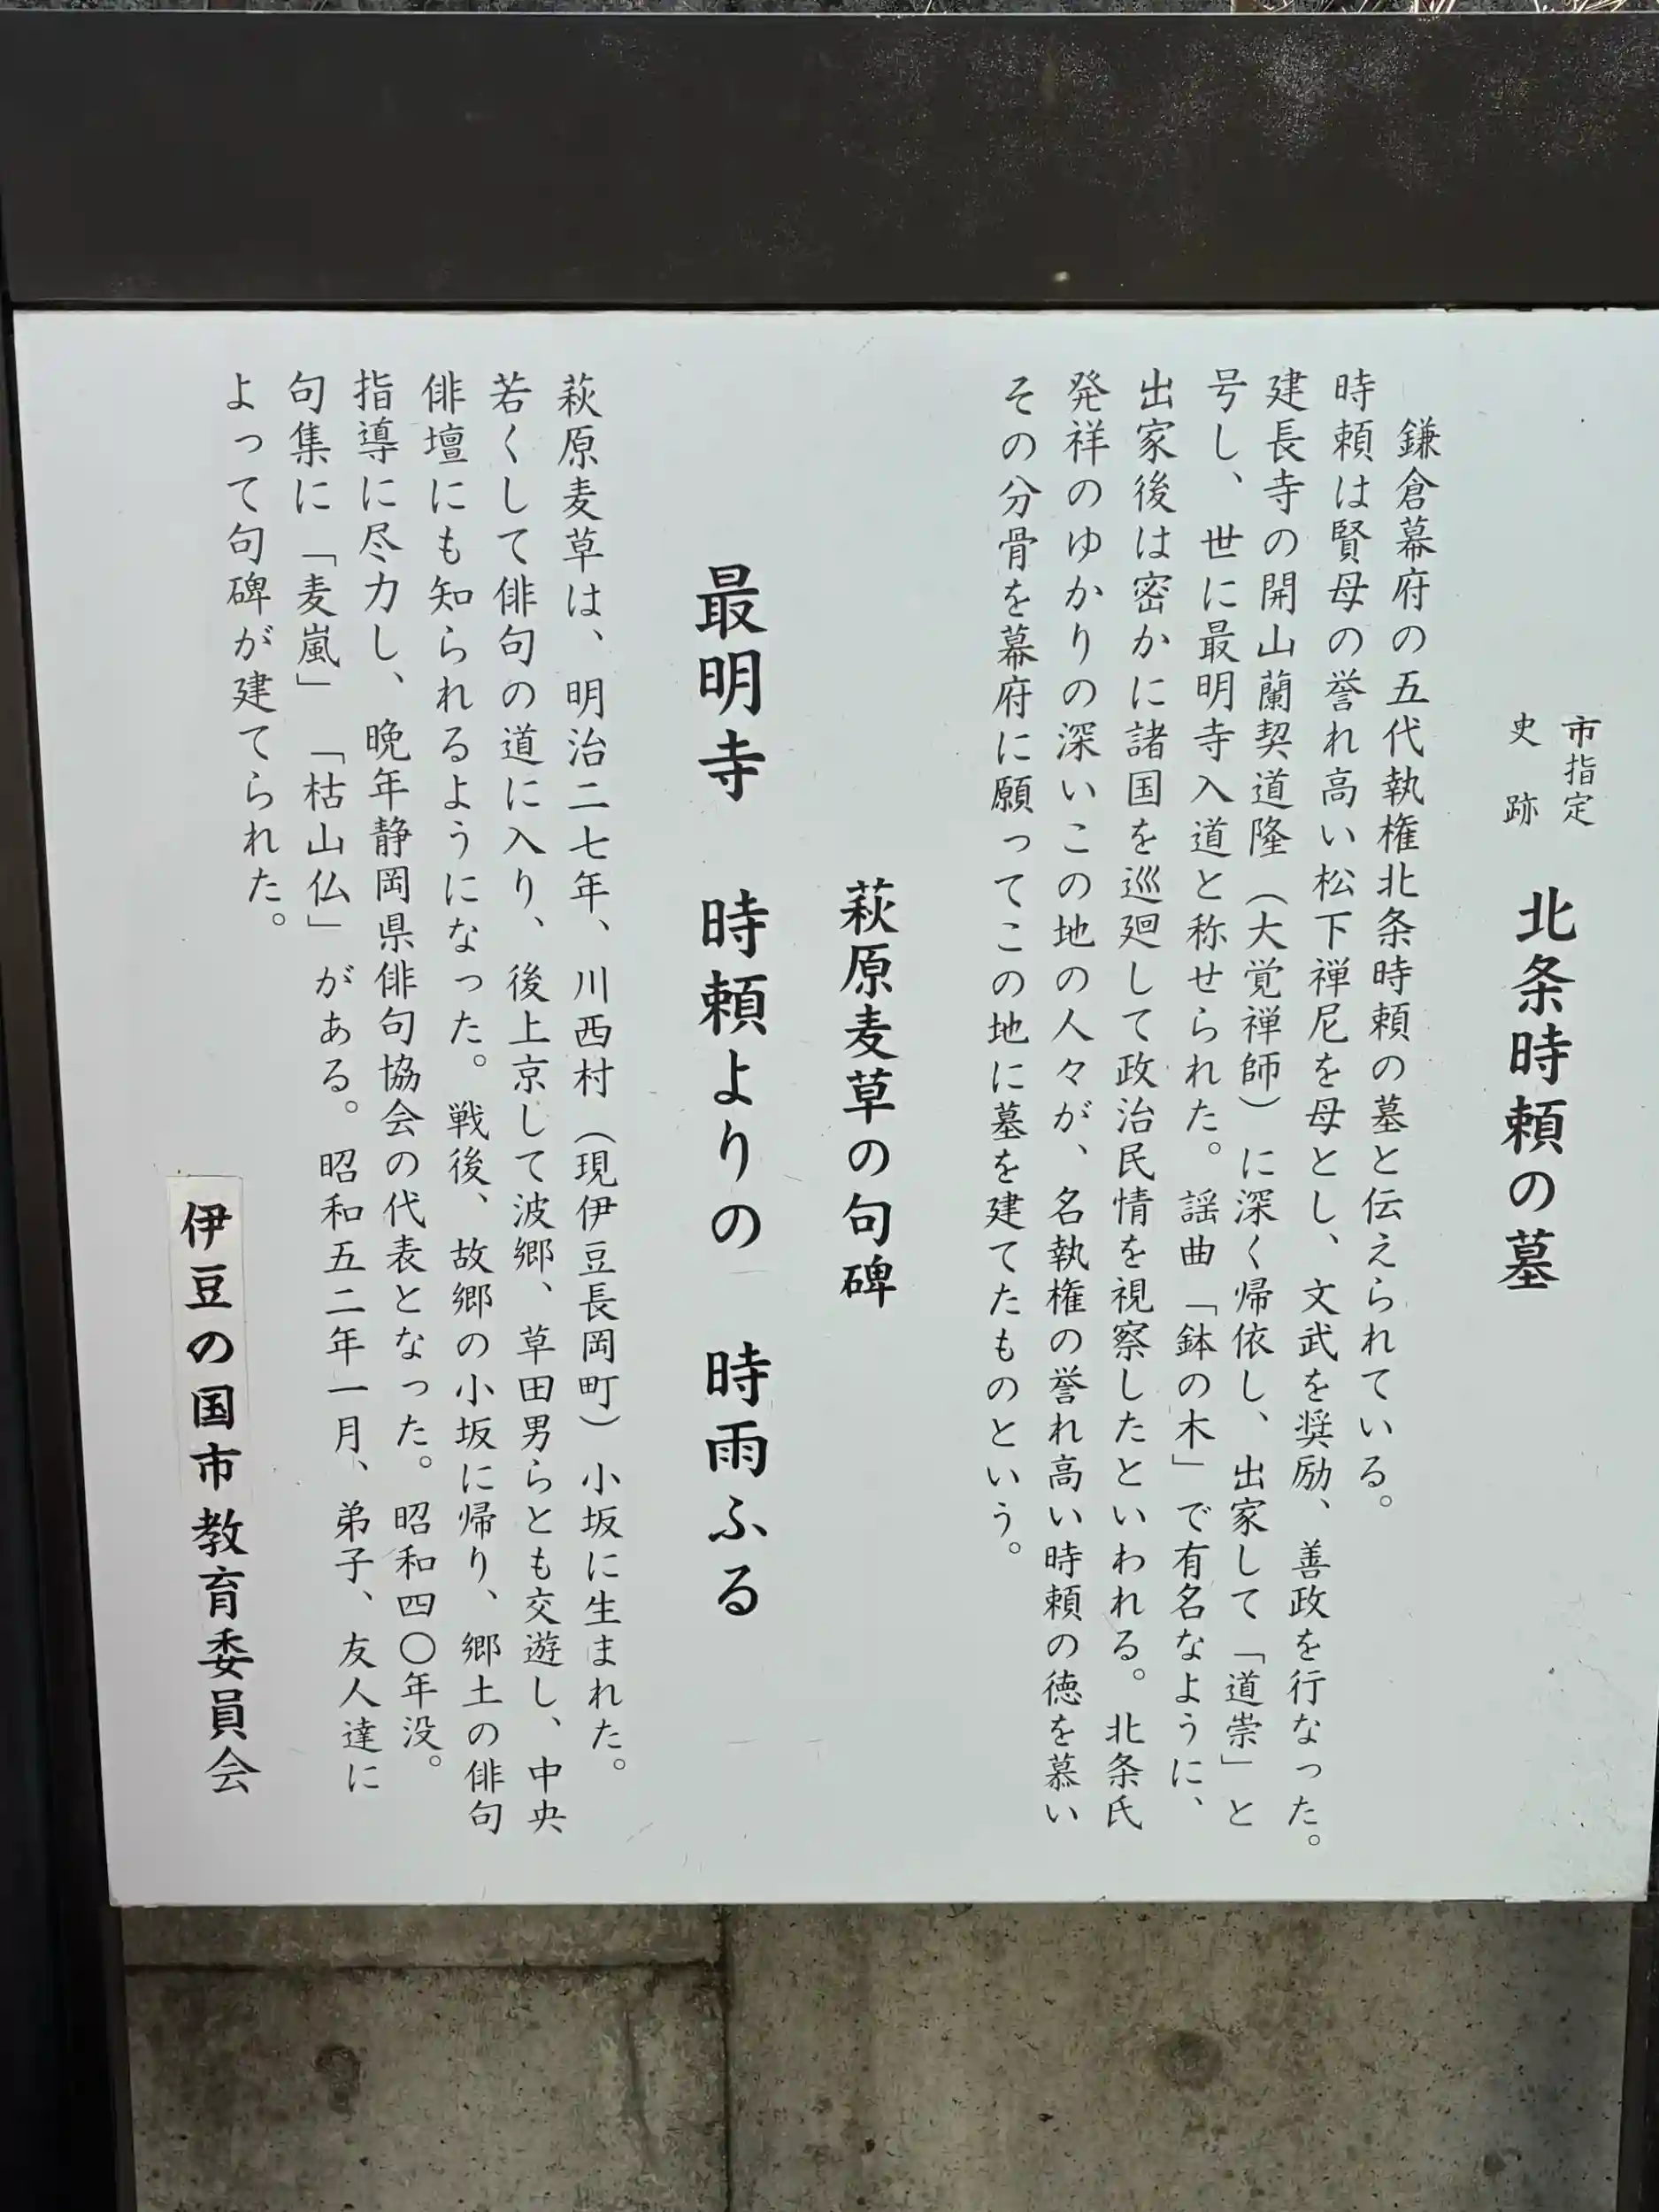 市指定
史跡
北条時頼の墓
鎌倉幕府の五代執権北条時頼の墓と伝えられている。
時頼は賢母の誉れ高い松下禅尼を母とし、文武を奨励、善政を行なった。
建長寺の開山蘭契道隆（大覚禅師）に深く帰依し、出家して「道崇」と
号し、世に最明寺入道と称せられた。謡曲「鉢の木」で有名なように、
出家後は密かに諸国を巡廻して政治民情を視察したといわれる。北条氏
発祥のゆかりの深いこの地の人々が、名執権の誉れ高い時頼の徳を慕い
その分骨を幕府に願ってこの地に墓を建てたものという。
萩原麦草の句碑
最明寺　時頼よりの　時雨ふる
萩原麦草は、明治二七年、川西村（現伊豆長岡町）小坂に生まれた。
若くして俳句の道に入り、後上京して波郷、草田男らとも交遊し、中央
俳壇にも知られるようになった。戦後、故郷の小坂に帰り、郷土の俳句
指導に尽力し、晩年静岡県俳句協会の代表となった。昭和四〇年没。
句集に「麦嵐」「枯山仏」がある。昭和五二年一月、弟子、友人達に
よって句碑が建てられた。
伊豆の国市教育委員会